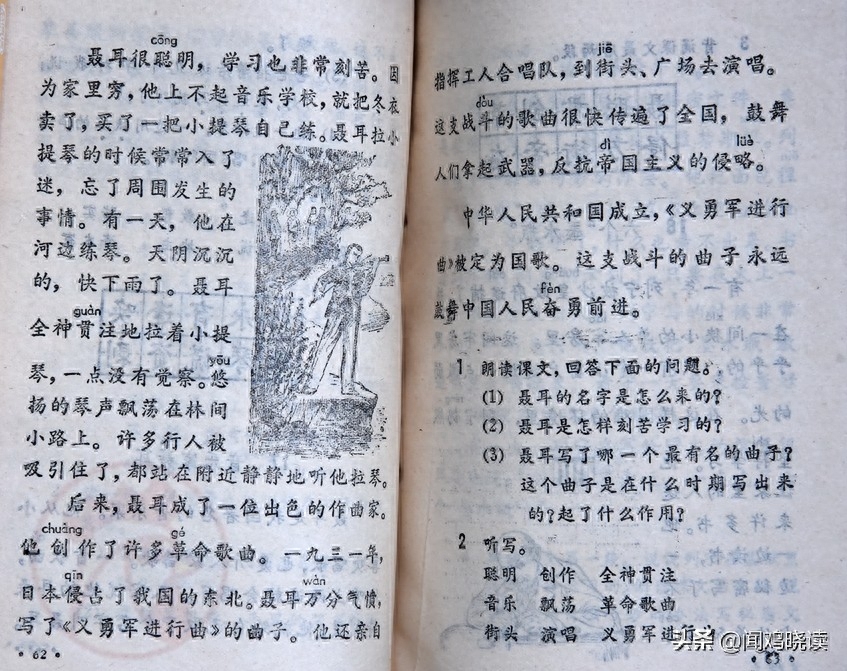 cōng
聂耳很聪明，学习也非常刻苦。因
为家里穷，他上不起音乐学校，就把冬衣
卖了，买了一把小提琴自己练。聂耳拉小
提琴的时候常常入了
迷，忘了周围发生的
事情。有一天，他在
河边练琴。天阴沉沉
的，快下雨了。聂耳
guàn
全神贯注地拉着小提
yōu
琴，一点没有觉察。悠
扬的琴声飘荡在林间
小路上。许多行人被
吸引住了，都站在附近静静地听他拉琴。
后来，聂耳成了一位出色的作曲家。
chuàng gé
他创作了许多革命歌曲。一九三一年，
qīn wàn
日本侵占了我国的东北。聂耳万分气愤，
写了《义勇军进行曲》的曲子。他还亲自
·62·
jiē
指挥工人合唱队，到街头、广场去演唱。
dòu
这支战斗的歌曲很快传遍了全国，鼓舞
dì lüè
人们拿起武器，反抗帝国主义的侵略。
中华人民共和国成立，《义勇军进行
曲》被定为国歌。这支战斗的曲子永远
fèn
鼓舞中国人民奋勇前进。
1 朗读课文，回答下面的问题。
(1) 聂耳的名字是怎么来的？
(2) 聂耳是怎样刻苦学习的？
(3) 聂耳写了哪一个最有名的曲子？
这个曲子是在什么时期写出来
的？起了什么作用？
2 听写。
聪明 创作 全神贯注
音乐 飘荡 革命歌曲
街头 演唱 义勇军进行曲
·63·
头条 @闻鸡晓读